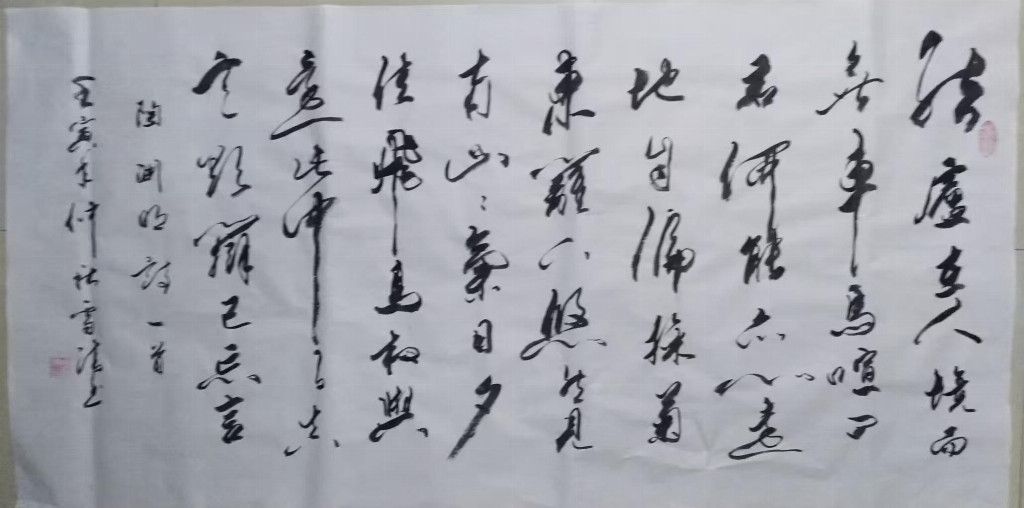 結廬在人境而
無車馬喧問
君何能尔心遠
地自偏採菊
東籬下悠然見
南山〻氣日夕
佳飛鳥相與
還此中有真
意欲辯已忘言
陶淵明詩一首
壬寅年仲秋雷